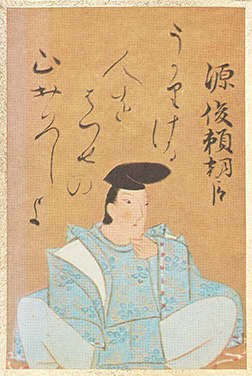 源俊頼朝臣
うかりける
人をはつせの
山おろしよ